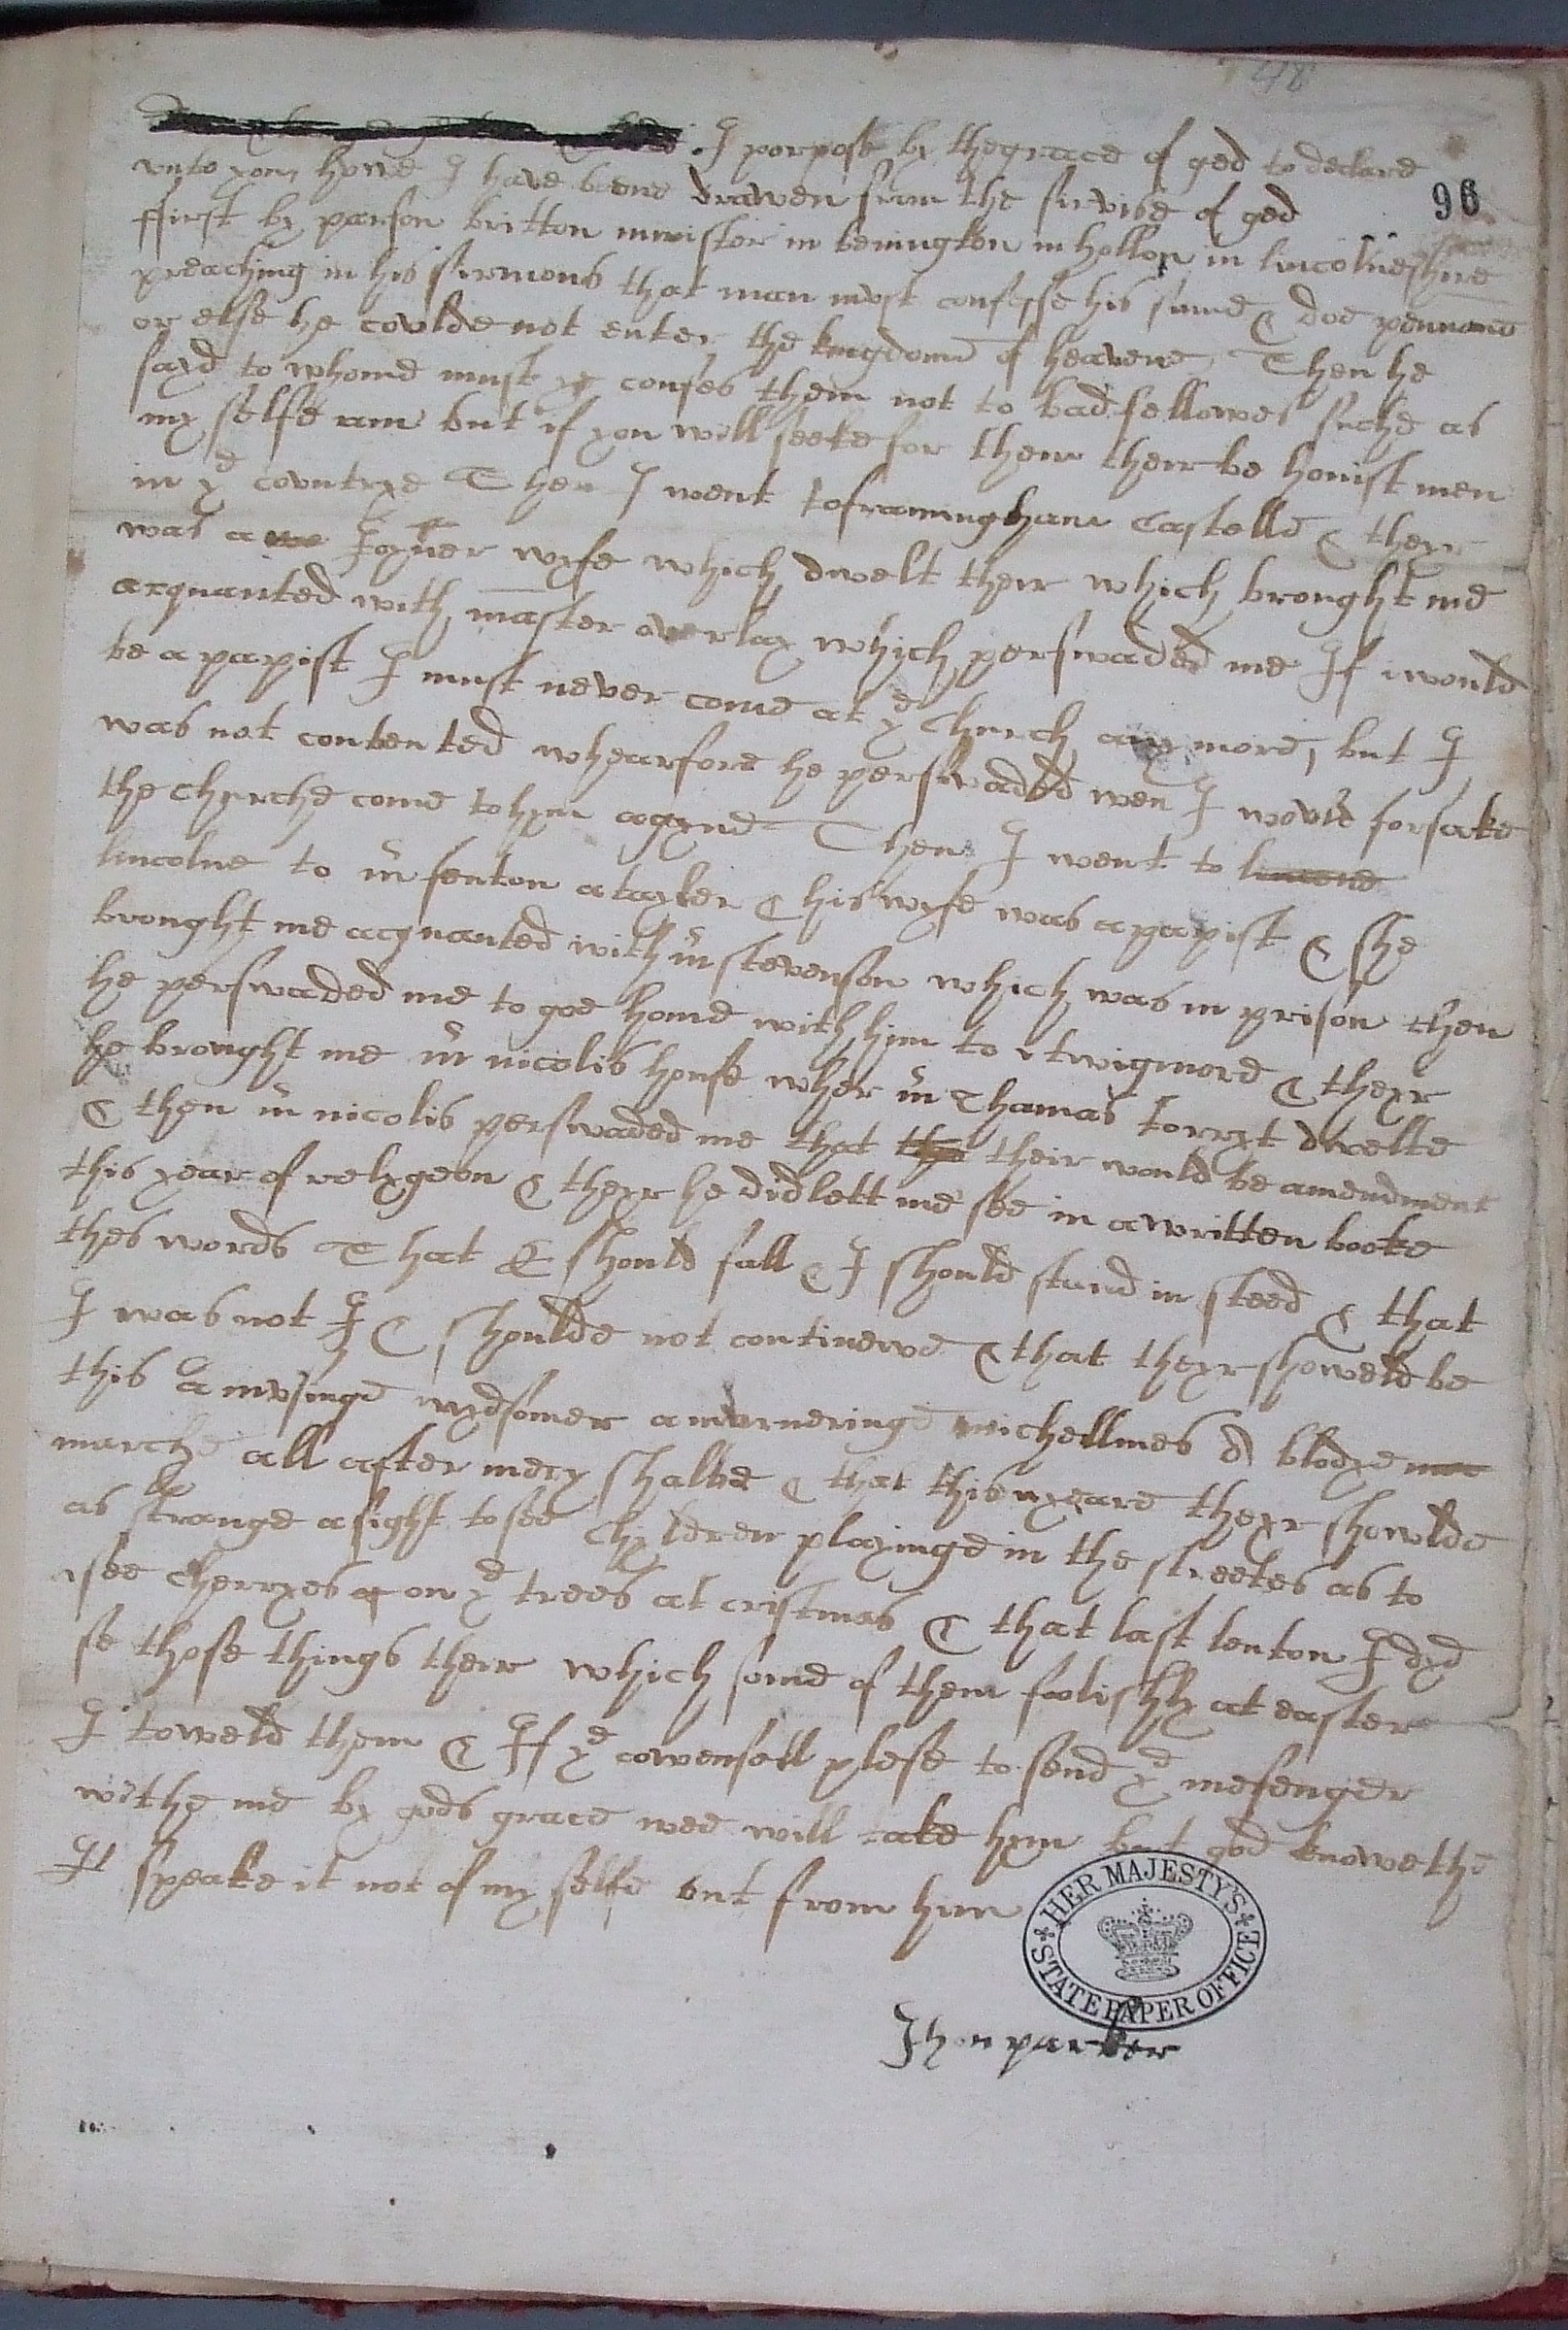 48
I porpose by the grace of god to declare
96
unto you howe I have beene drawen from the service of god
ffirst by parson britton minister in benington in hollon in lincolneshire
preaching in his sirmons that man must confesse his sinne & doe pennane
or else he coulde not enter the kingdome of heavene, Then he
sayd to whome must ye confes them not to bad fellowes suche as
my selfe am but if you will seeke for them their be honist men
in ye countrye Then I went to framingham Castelle & theyr
was a Joyner wyfe which dwelt their which brought me
acquanted with master overlay which perswaded me If i would
be a papist I must never come at ye Church any more, but I
was not contented whearfore he perswaded wen I would forsake
the churche come to hym agyne Then I went to
lincolne to mr fenton a tayler & his wyfe was a papist & she
brought me acquanted with mr stevenson which was in prison then
he perswaded me to goe home with him to twigmore & theyr
he brought me mr nicolis house wher mr Thamas torryt dwelte
& then mr nicolis perswaded me that the their would be amendment
this year of relygeon & theyr he did lett me see in a written booke
thes words That E should fall & J should stand in steed & that
J was not J & shoulde not continewe & that theyr showeld be
this a musinge mydsomer a murneringe michellmes a blodye
marche all after mery shalbe & that this nyeare theyr showlde
as strange a sight to see Chylderen playinge in the streetes as to
see Cherryes on ye trees at cristmas & that last lenton I dyd
se those things their which some of them foolishly at easter
I toweld them & If ye cowensell plese to send ye mesenger
withe me by gods grace wee will take hym but god knowethe
I speake it not of my selfe but from him
HER MAJESTY'S STATE PAPER OFFICE
Jhon parker